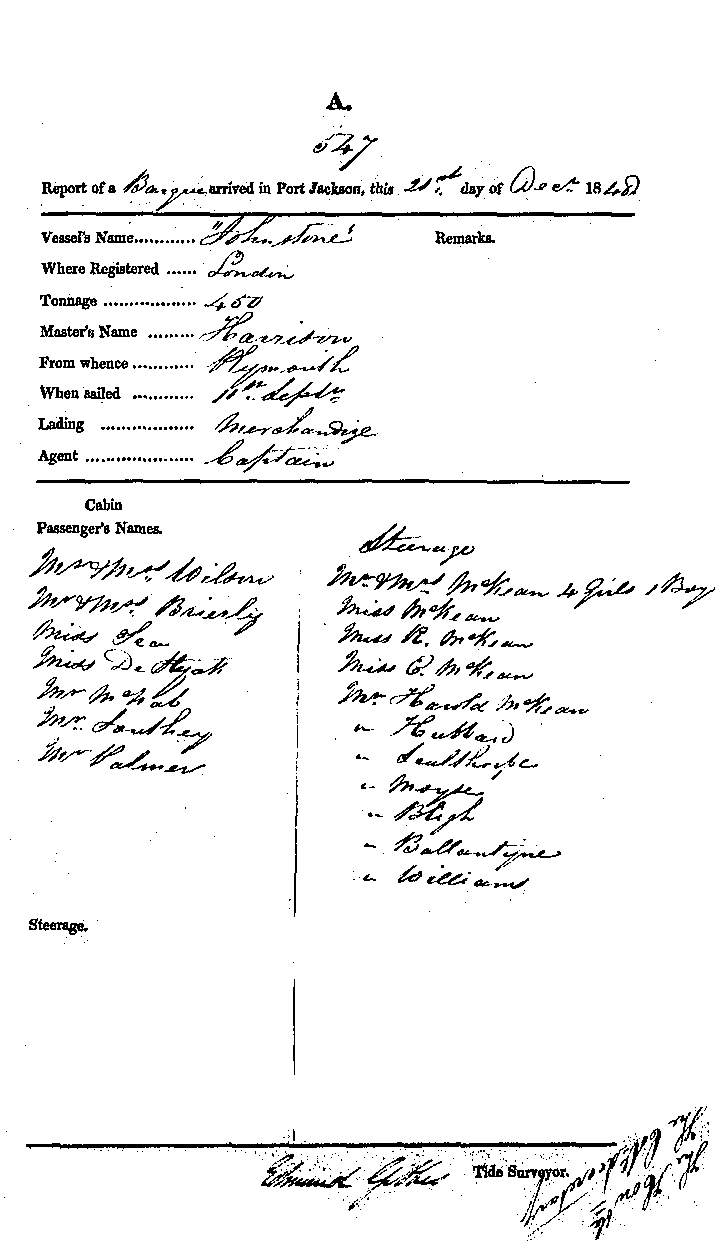 A.
547
Report of a Barque arrived in Port Jackson, this 21st day of Decr. 1848
Vessel's Name............ "Johnstone"
Remarks.
Where Registered ...... London
Tonnage .................. 450
Master's Name ......... Harrison
From whence............ Plymouth
When sailed ............ 11th Septr
Lading .................. Merchandize
Agent ..................... Captain
Cabin
Passenger's Names.
Mr & Mrs. Wilson
Mr & Mrs. Brierly
Miss Lea
Miss De
Mr McNab
Mr. Southey
Mr Palmer
Steerage
Mr. & Mrs. McKean 4 Girls 1 Boy
Miss McKean
Miss R. McKean
Miss E. McKean
Mr. Harold McKean
" Hubbard
" Sculthorpe
" Moyse
" Bligh
" Ballantyne
" Williams
Steerage.
Edmund
Tide Surveyor.
The Honble
The